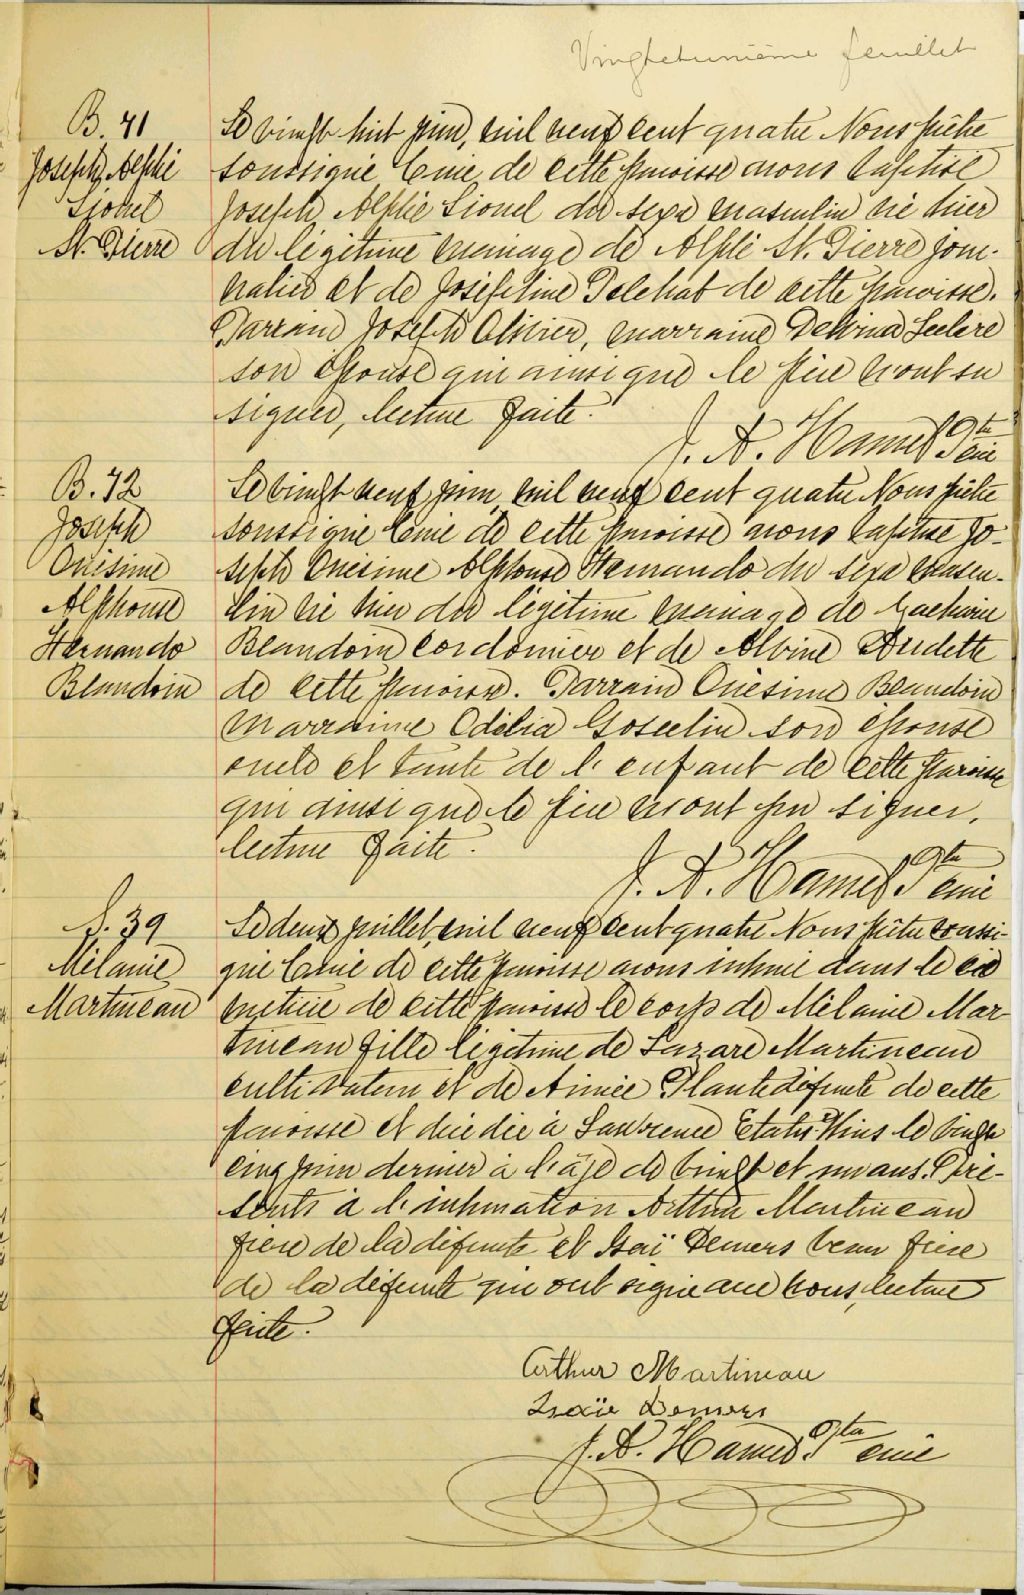 Vingtetunième feuillet
B. 71
Joseph Alphé
Lionel
St. Pierre
Le vingt huit juin, mil neuf cent quatre Nous prêtre
soussigné Curé de cette paroisse avons baptisé
Joseph Alphé Lionel du sexe masculin né hier
du légitime mariage de Alphé St. Pierre jour-
nalier et de Joséphine de cette paroisse.
Parrain Joseph Olivier, marraine Delvina Leclerc
son épouse qui ainsi que le père n'ont su
signer, lecture faite.
J. A. Hamel Ptre curé
B. 72
Joseph
Onésime
Alphonse
Hernando
Beaudoin
Le vingt neuf juin, mil neuf cent quatre Nous prêtre
soussigné Curé de cette paroisse avons baptisé Jo-
seph Onésime Alphonse Hernando du sexe mascu-
lin né hier du légitime mariage de Zacharie
Beaudoin cordonnier et de Albina Audette
de cette paroisse. Parrain Onésime Beaudoin
Marraine Odélia Gosselin son épouse
oncle et tante de l'enfant de cette paroisse
qui ainsi que le père n'ont pu signer,
lecture faite.
J. A. Hamel Ptre curé
S. 39
Mélanie
Martineau
Le deux juillet, mil neuf cent quatre Nous prêtre soussi-
gné Curé de cette paroisse avons inhumé dans le ci
metière de cette paroisse le corps de Mélanie Mar-
tineau fille légitime de Lazare Martineau
cultivateur et de Aimée Plante défunte de cette
paroisse et décédée à Lawrence Etats-Unis le vingt
cinq juin dernier à l'âge de vingt et un ans. Pré-
sents à l'inhumation Arthur Martineau
frère de la défunte et Isaï Demers beau frère
de la défunte qui ont signé avec nous, lecture
faite.
Arthur Martineau
Isaïe Demers
J. A. Hamel Ptre curé